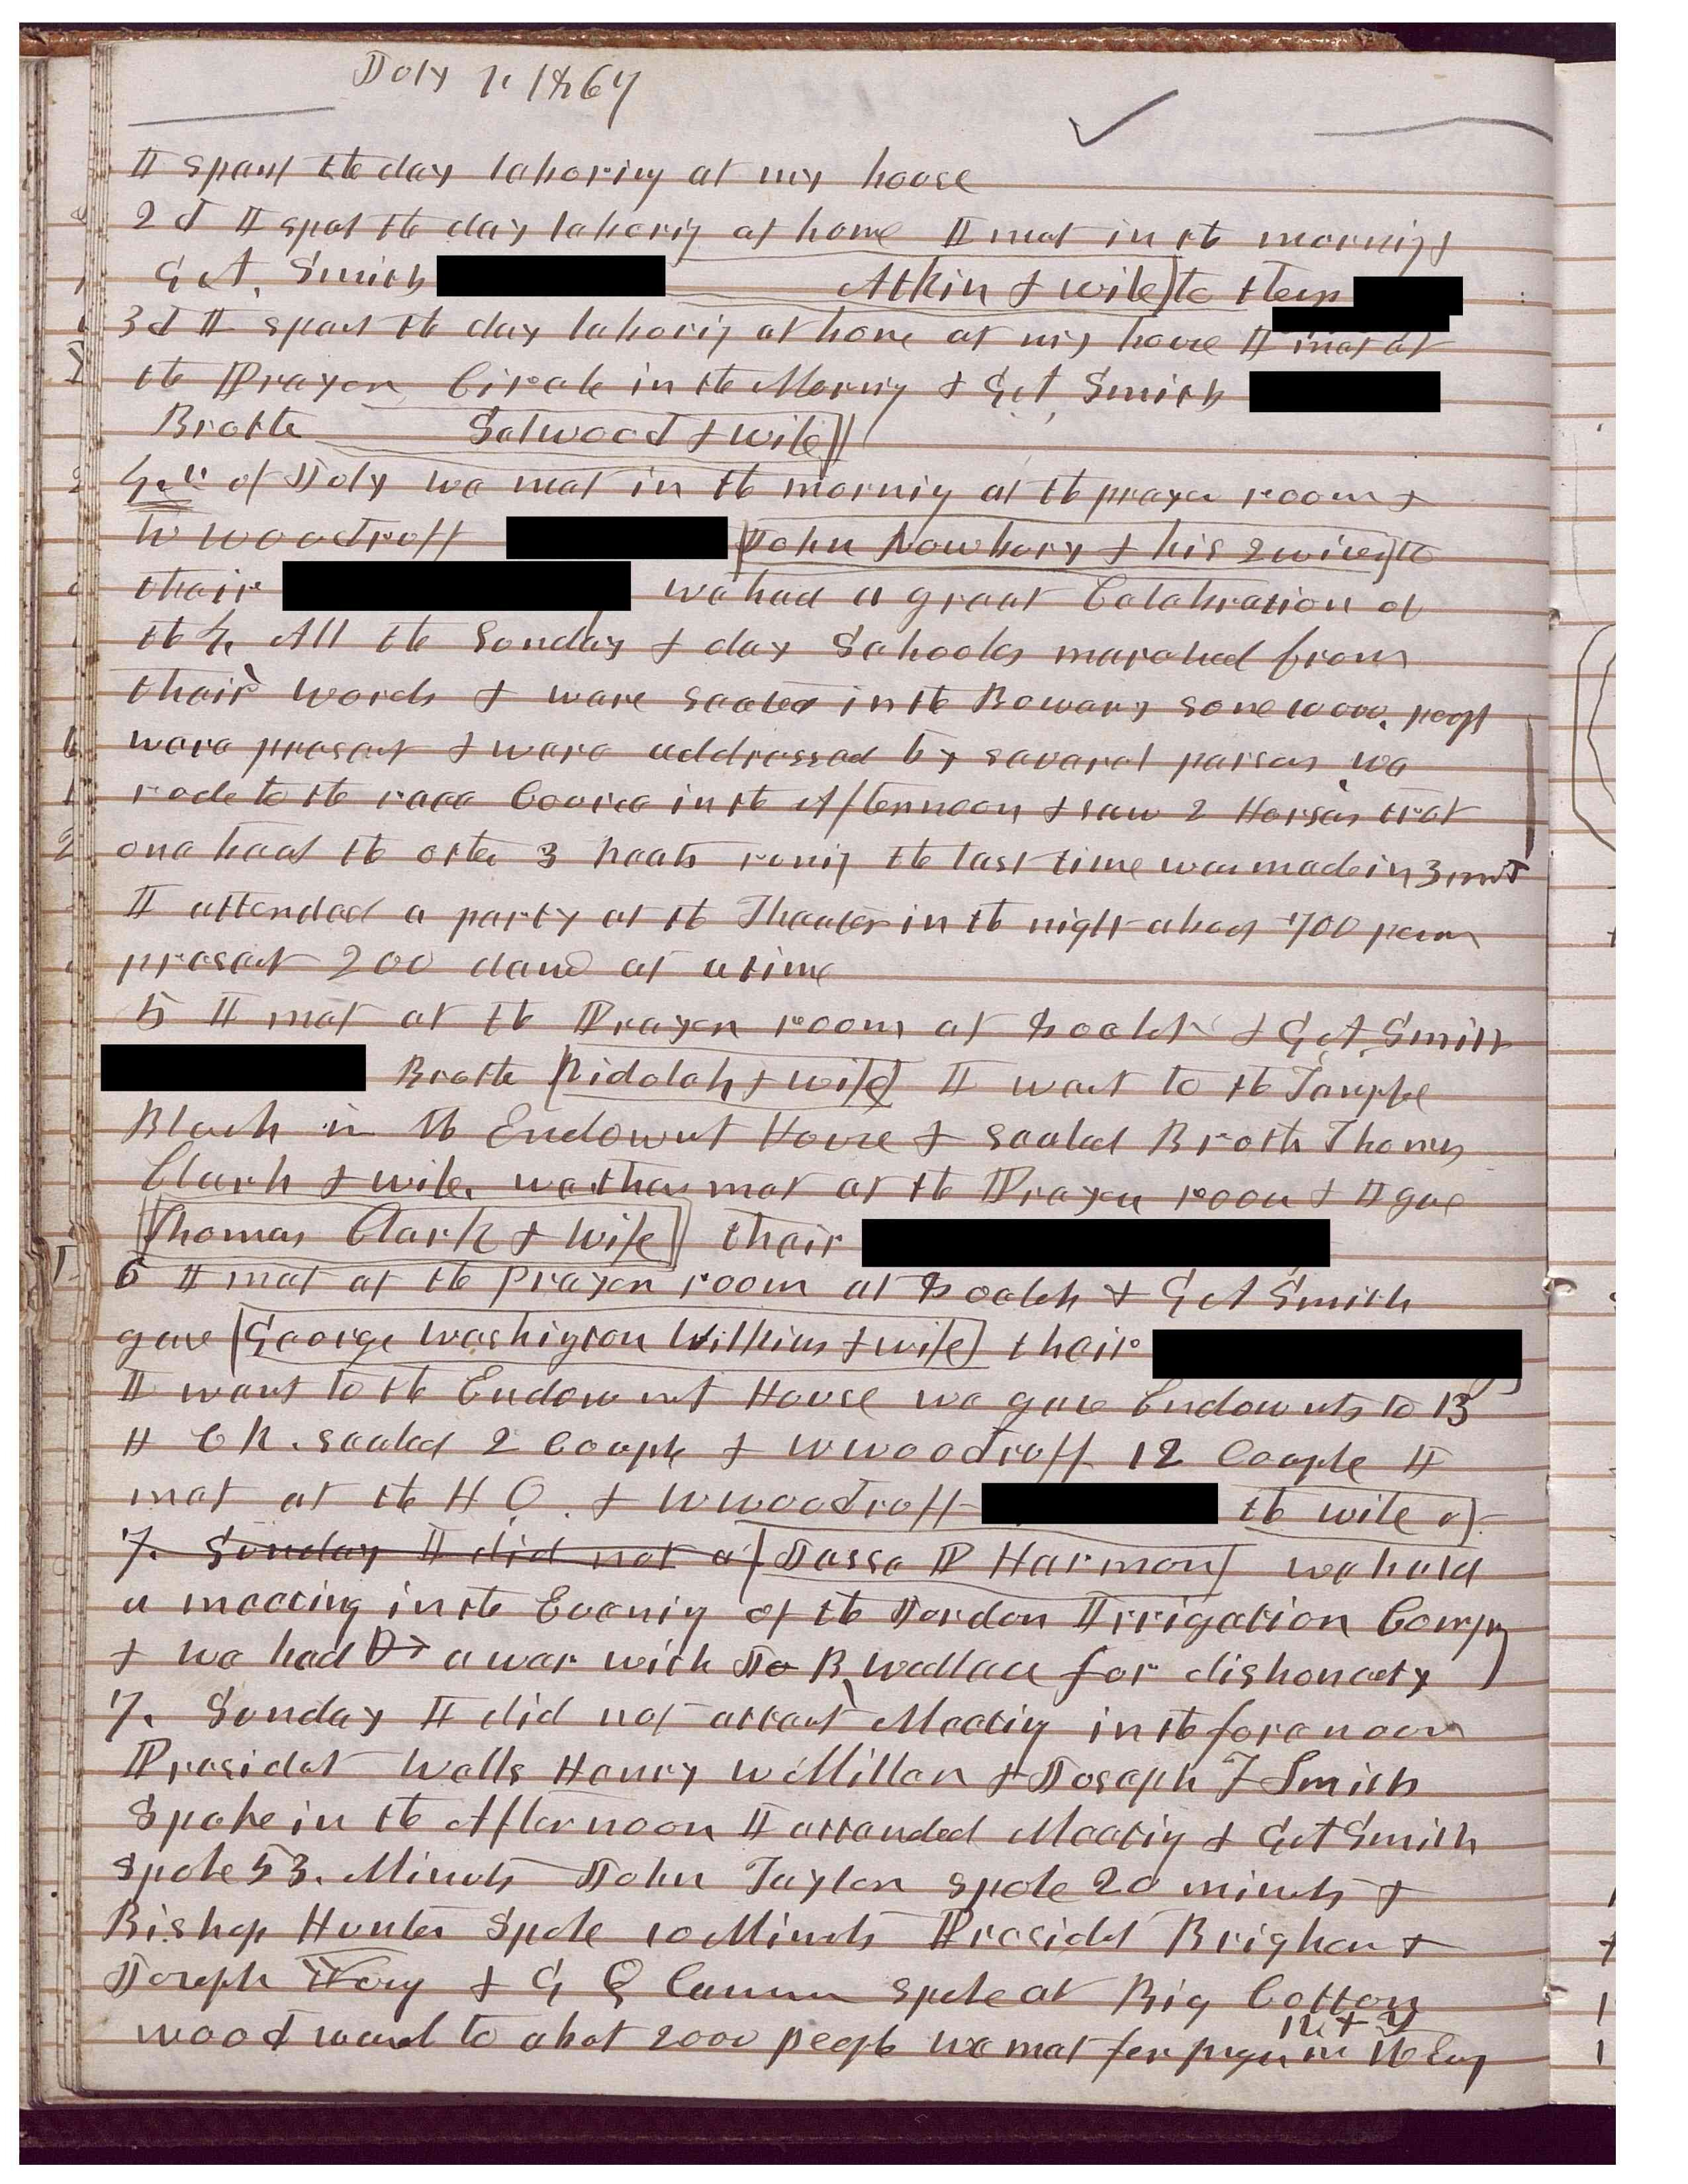 July 1, 1867
I spent the day laboring at my house
2d I spent the day laboring at home I met in the morning &
G A. Smith Atkin & wife to them
3d I spent the day laborig at home at my house I met at
the Prayer Circle in the Morning & G A Smith
Brother Selwood & wife
4th of July we met in the morning at the prayer room &
W Woodruff John Newbury & his 2 wives to
their we had a great Celebration of
the 4. All the Sunday & day Schools marched from
their words & were seated in the Bowery some 10000. peopl
were present & were addressed by several persons we
rode to the race Course in the Afternoon & saw 2 Horses trot
one heat the other 3 heats runig the last time was made in 3 mt
I attended a party at the Theater in the night about 700 persons
present 200 danced at a time
5 I met at the Prayer room at 8 oclok & G A. Smith
Brother & wife I went to the Temple
Block in the Endowmt House & sealed Broth Thomas
Clark & wife. we then met at the Prayer room & I gave
Thomas Clark & wife their
6 I met at the prayer room at 8 oclock & G A Smith
gave George Washington Wilkins & wife their
I went to the Endowmt House we gave Endowmts to 13
H C K. sealed 2 Couple & W Woodruff 12 Couple I
met at the H O. & W Woodruff the wife of
7. Sunday I did not a Jesse P Harmon we held
a meeting in the Evenig of the Jordon Irrigation Compny
& we had a war with Jo B. Wallace for dishonesty
7. Sunday I did not attend Meetig in the forenoon
President Wells Henry W Miller & Joseph F Smith
Spoke in the Afternoon I attended Meetig & G A Smith
spoke 53. Minuts John Taylor spoke 20 minuts &
Bishop Hunter Spoke 10 Minuts Presidet Brigham &
Joseph Young & G Q Cannon spoke at Big Cotton
wood ward to about 2000 people we met for prayer in the Evng